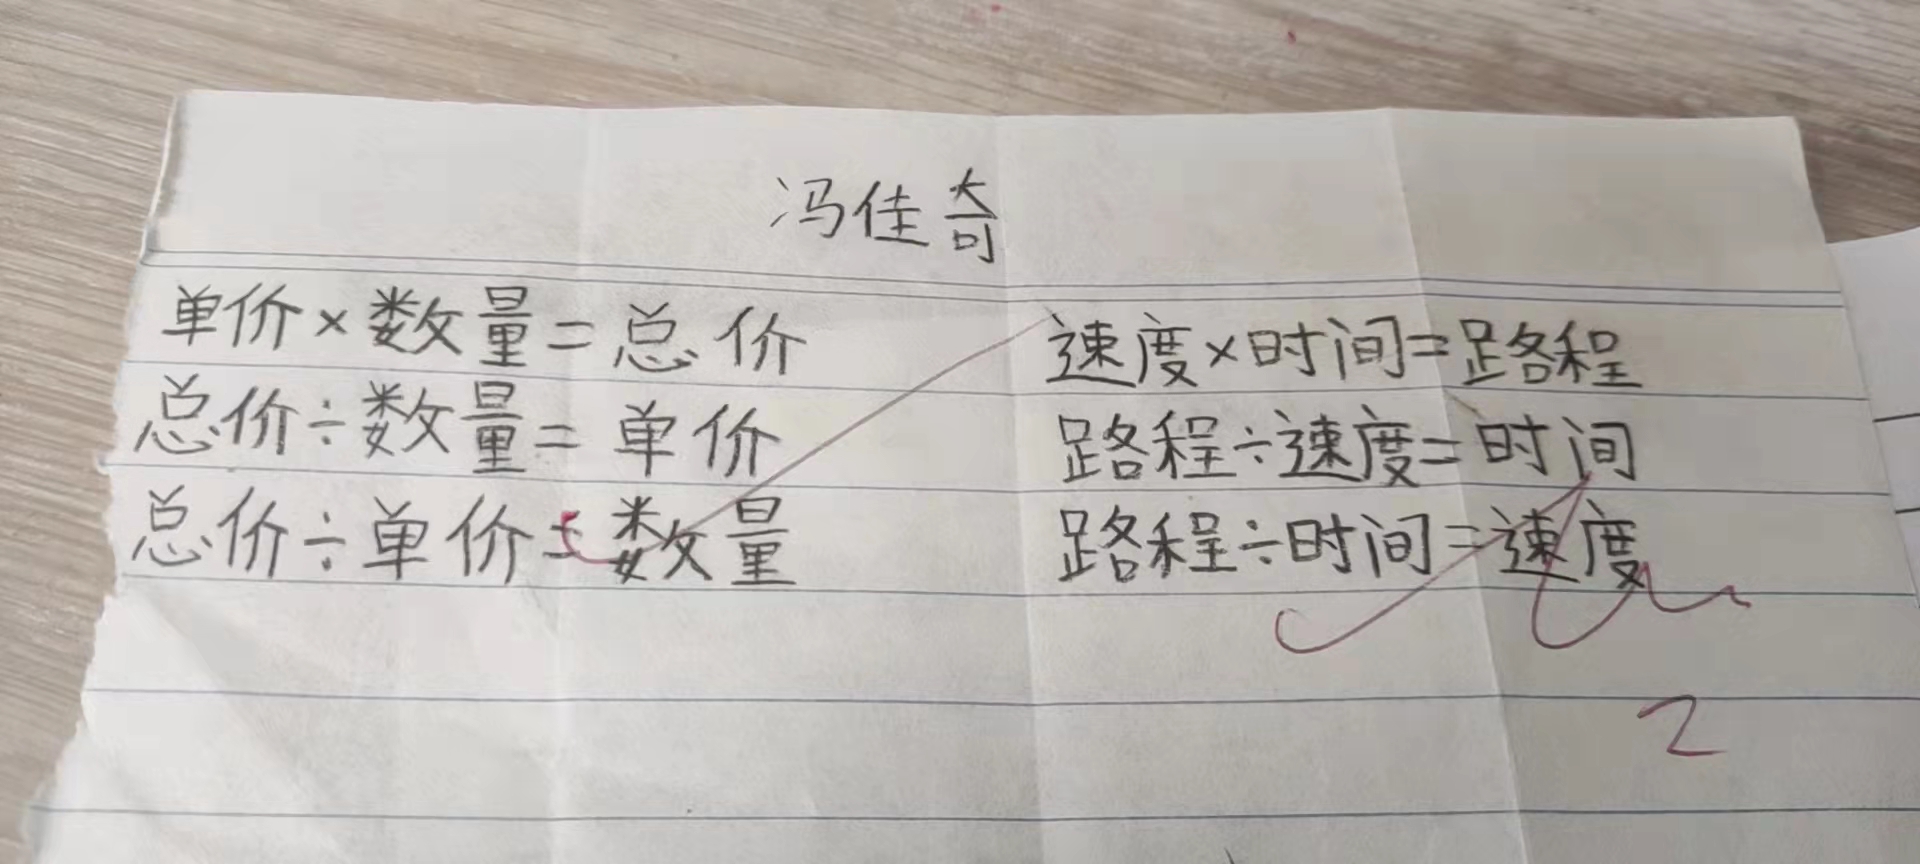 冯佳奇
单价×数量=总价 速度×时间=路程
总价÷数量=单价 路程÷速度=时间
总价÷单价=数量 路程÷时间=速度
2